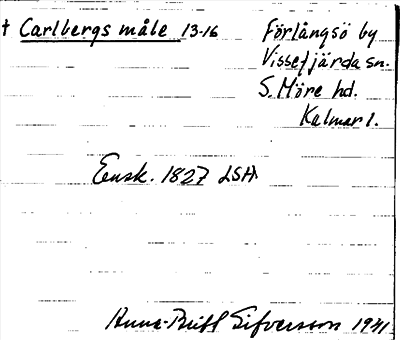 † Carlbergs måle 13-16 Förlångsö by
Vissefjärda sn.
S. Möre hd.
Kalmar l.
Ensk. 1827 LSA
Anna-Britt Sifversson 1941.